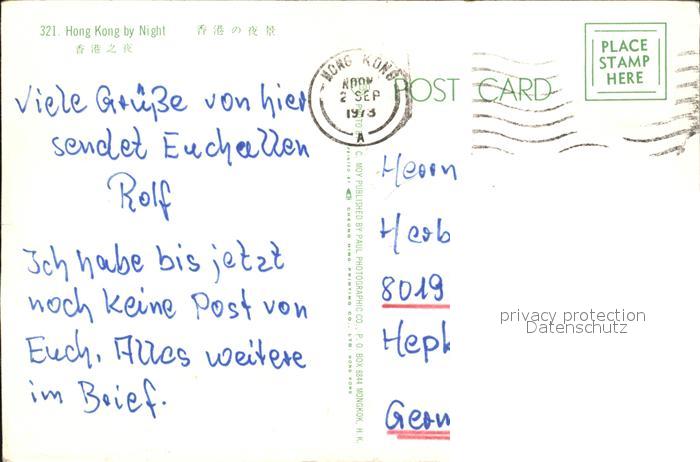 321. Hong Kong by Night 香港の夜景
香港之夜
Viele Grüße von hier
sendet Euch allen
Rolf
Ich habe bis jetzt
noch keine Post von
Euch. Alles weitere
im Brief.
HONG KONG
NOON
2 SEP
1973
A
C. MOY PUBLISHED BY PAUL PHOTOGRAPHIC CO., P. O. BOX 6844 MONGKOK, H. K.
POST CARD
PLACE
STAMP
HERE
Herrn
Herb
8019
Heph
Germ
privacy protection
Datenschutz